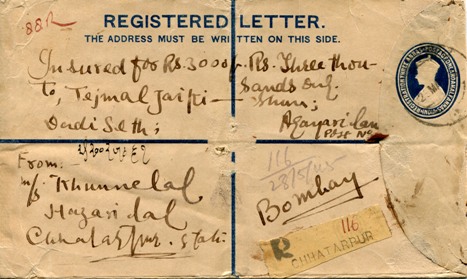 88R
REGISTERED LETTER.
THE ADDRESS MUST BE WRITTEN ON THIS SIDE.
Insured for Rs. 3000/- Rs. Three thou-
sands only
to, Tejmal
Dadi Seth;
Agayari lan
Post No
From:
M/s Khunnelal
Hazarilal
Chhatarpur. State
116
28/5/45
Bombay
R 116
CHHATARPUR